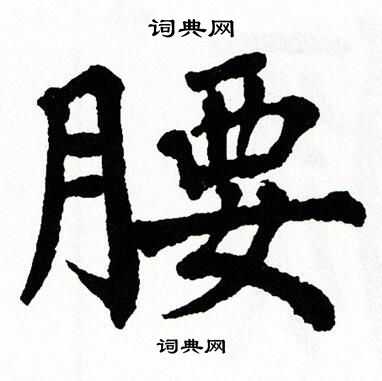 词典网
腰
词典网